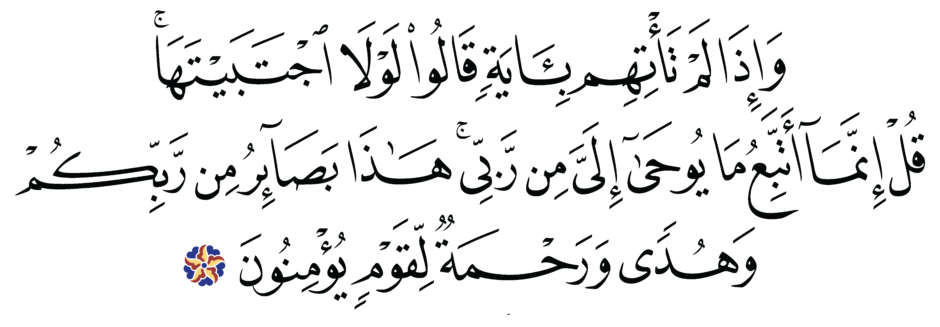 وَإِذَا لَمْ تَأْتِهِم بِـَٔايَةٍ قَالُوا۟ لَوْلَا ٱجْتَبَيْتَهَا ۚ
قُلْ إِنَّمَآ أَتَّبِعُ مَا يُوحَىٰٓ إِلَىَّ مِن رَّبِّى ۚ هَـٰذَا بَصَآئِرُ مِن رَّبِّكُمْ
وَهُدًى وَرَحْمَةٌ لِّقَوْمٍ يُؤْمِنُونَ